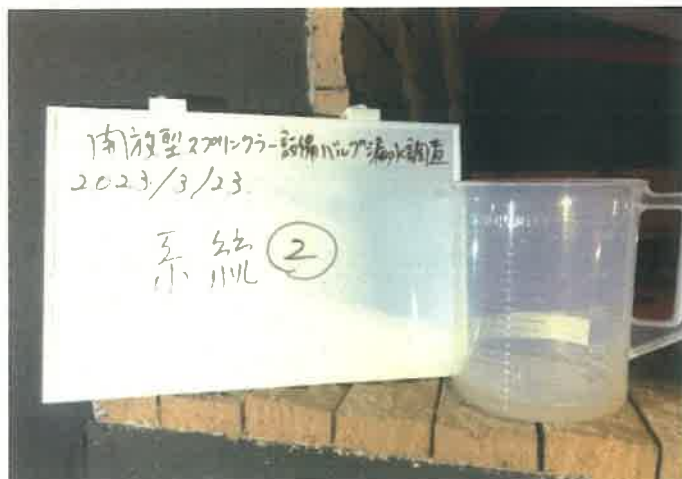 開放型スプリンクラー設備バルブ漏水調査
2023/3/23
系統 ②